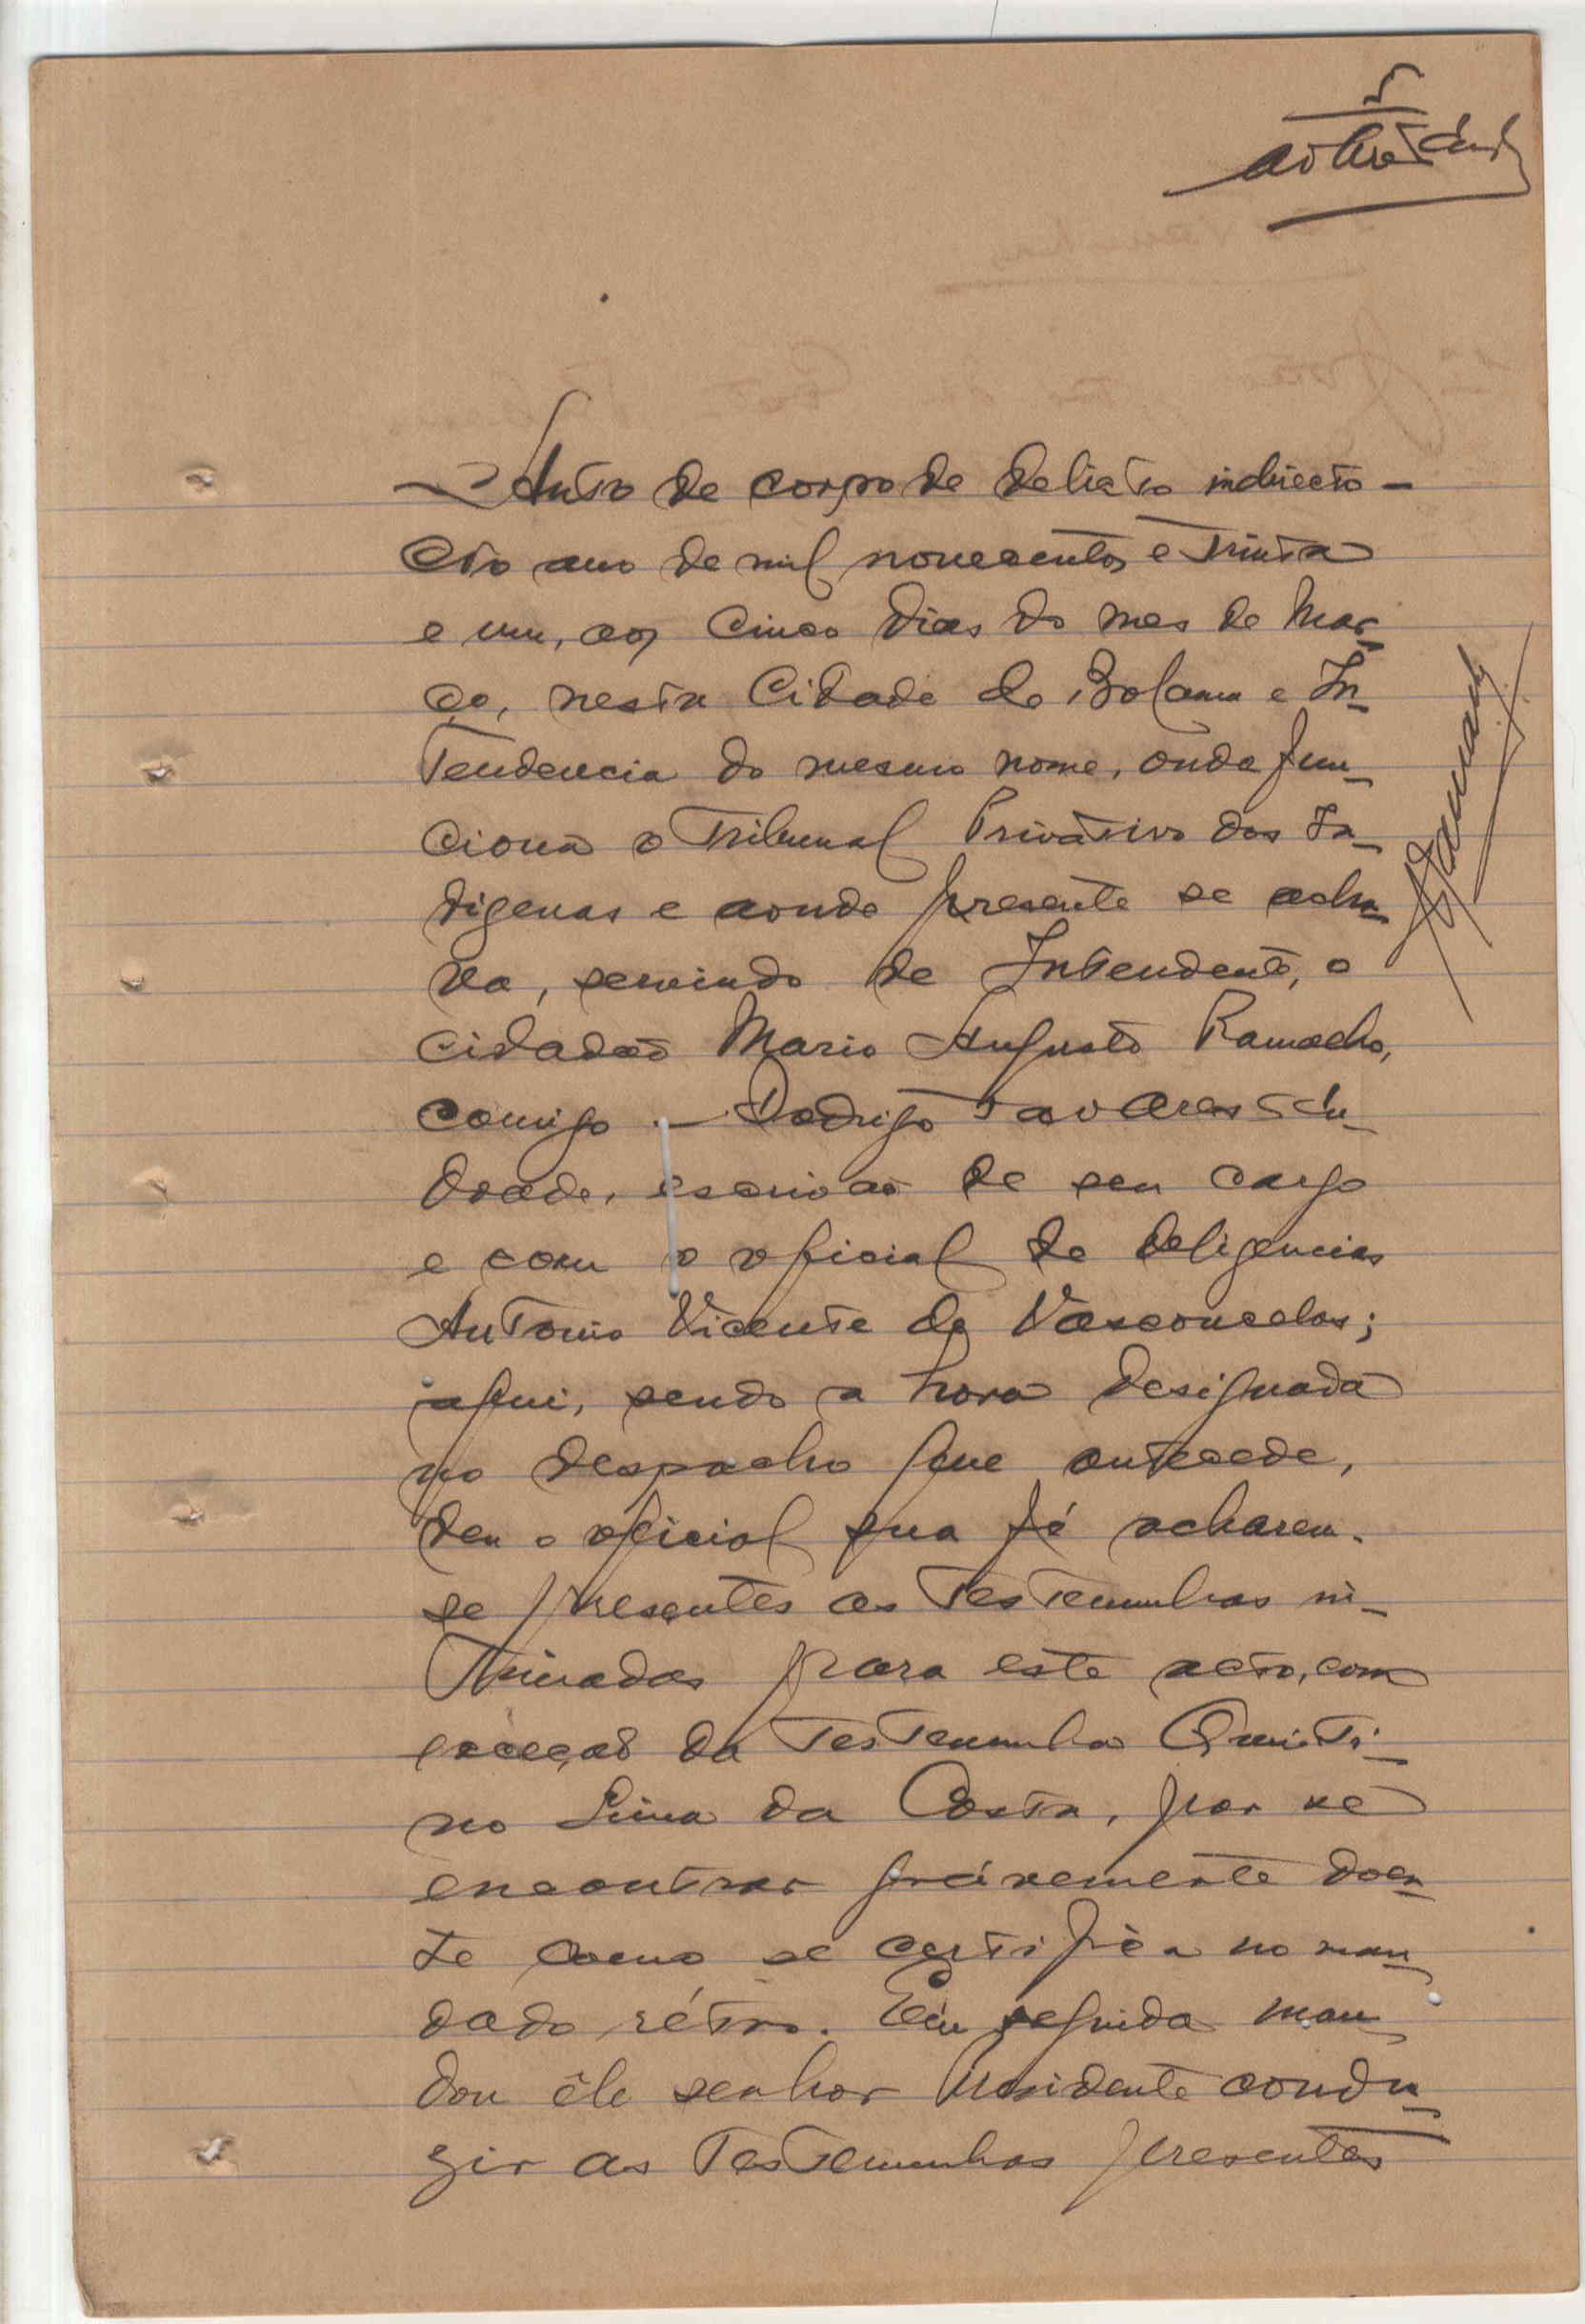 5
Auto de corpo de delicto indirecto –
Ao ano de mil novecentos e trinta
e um, aos cinco dias do mes de Mar-
ço, nesta Cidade de Bolama e In-
tendencia do mesmo nome, onde fun-
ciona o Tribunal Privativo dos In-
digenas e aonde presente se acha-
va, servindo de Intendente, o
cidadão Mario Augusto Ramacho,
comigo – Rodrigo Tavares
escrivão de seu cargo
e com o oficial de deligencias
Antonio Vicente de Vasconcelos;
aqui, sendo a hora designada
no despacho que antecede,
deu o oficial sua fé acharem-
se presentes as testemunhas in-
timadas para este acto, com
exceção da testemunha Quinti-
no Lima da Costa, por se
encontrar gravemente doen-
te como se certifica no man-
dado rétro. Em seguida man-
dou êle senhor Presidente condu-
zir as testemunhas presentes